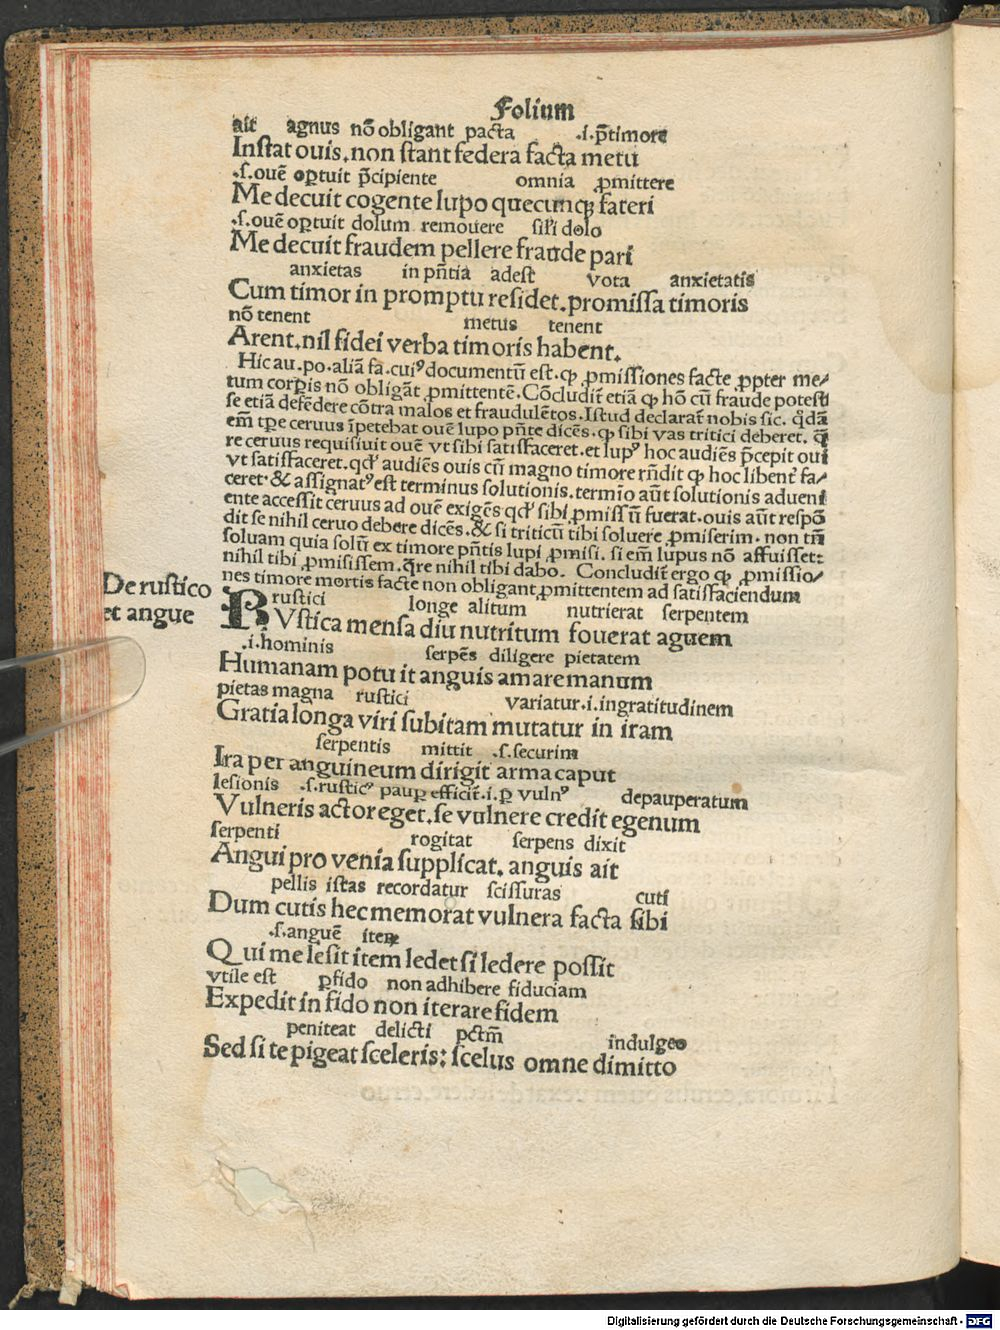 Folium
ait agnus nō obligant pacta .i. p̄timore
Instat ouis. non stant federa facta metu
.s. ouē oꝑtuit p̄cipiente omnia ꝓmittere
Me decuit cogente lupo quecunqꝫ fateri
.s. ouē oꝑtuit dolum remouere sil'i dolo
Me decuit fraudem pellere fraude pari
anxietas in pn̄tia adest vota anxietatis
Cum timor in promptu residet. promissa timoris
nō tenent metus tenent
Arent. nil fidei verba timoris habent.
Hic au. po. aliā fa. cuiꝰ documentū est. ꝙ ꝓmissiones facte ꝓpter me/
tum corꝑis nō obligāt ꝓmittentē. Cōcludit̄ etiā ꝙ hō cū fraude potest
se etiā defēdere cōtra malos et fraudulētos. Istud declarat̄ nobis sic. qdā
em̄ tꝑe ceruus īpetebat ouē lupo pn̄te dicēs. ꝙ sibi vas tritici deberet. q̄
re ceruus requisiuit ouē vt sibi satisfaceret. et lupꝰ hoc audiēs p̄cepit oui
vt satisfaceret. qd' audiēs ouis cū magno timore rn̄dit ꝙ hoc libent' fa/
ceret. & assignatꝰ est terminus solutionis. termīo aūt solutionis adueni
ente accessit ceruus ad ouē exigēs qd' sibi ꝓmissū fuerat. ouis aūt respō
dit se nihil ceruo debere dicēs. & si triticū tibi soluere ꝓmiserim. non tn̄
soluam quia solū ex timore pn̄tis lupi ꝓmisi. si em̄ lupus nō affuisset:
nihil tibi ꝓmisissem. q̄re nihil tibi dabo. Concludit̄ ergo ꝙ ꝓmissio/
nes timore mortis facte non obligant ꝓmittentem ad satisfaciendum
De rustico
et angue
rustici longe alitum nutrierat serpentem
RVstica mensa diu nutritum fouerat aguem
.i. hominis serpēs diligere pietatem
Humanam potu it anguis amare manum
pietas magna rustici variatur .i. ingratitudinem
Gratia longa viri subitam mutatur in iram
serpentis mittit .s. securim
Ira per anguineum dirigit arma caput
lesionis .s. rusticꝰ pauꝑ efficit̄ .i. ꝑ vulnꝰ depauperatum
Vulneris actor eget. se vulnere credit egenum
serpenti rogitat serpens dixit
Angui pro venia supplicat. anguis ait
pellis istas recordatur scissuras cuti
Dum cutis hec memorat vulnera facta sibi
.s. anguē item
Qui me lesit item ledet si ledere possit
vtile est ꝑfido non adhibere fiduciam
Expedit in fido non iterare fidem
peniteat delicti pctm̄ indulgeo
Sed si te pigeat sceleris: scelus omne dimitto
Digitalisierung gefördert durch die Deutsche Forschungsgemeinschaft - DFG